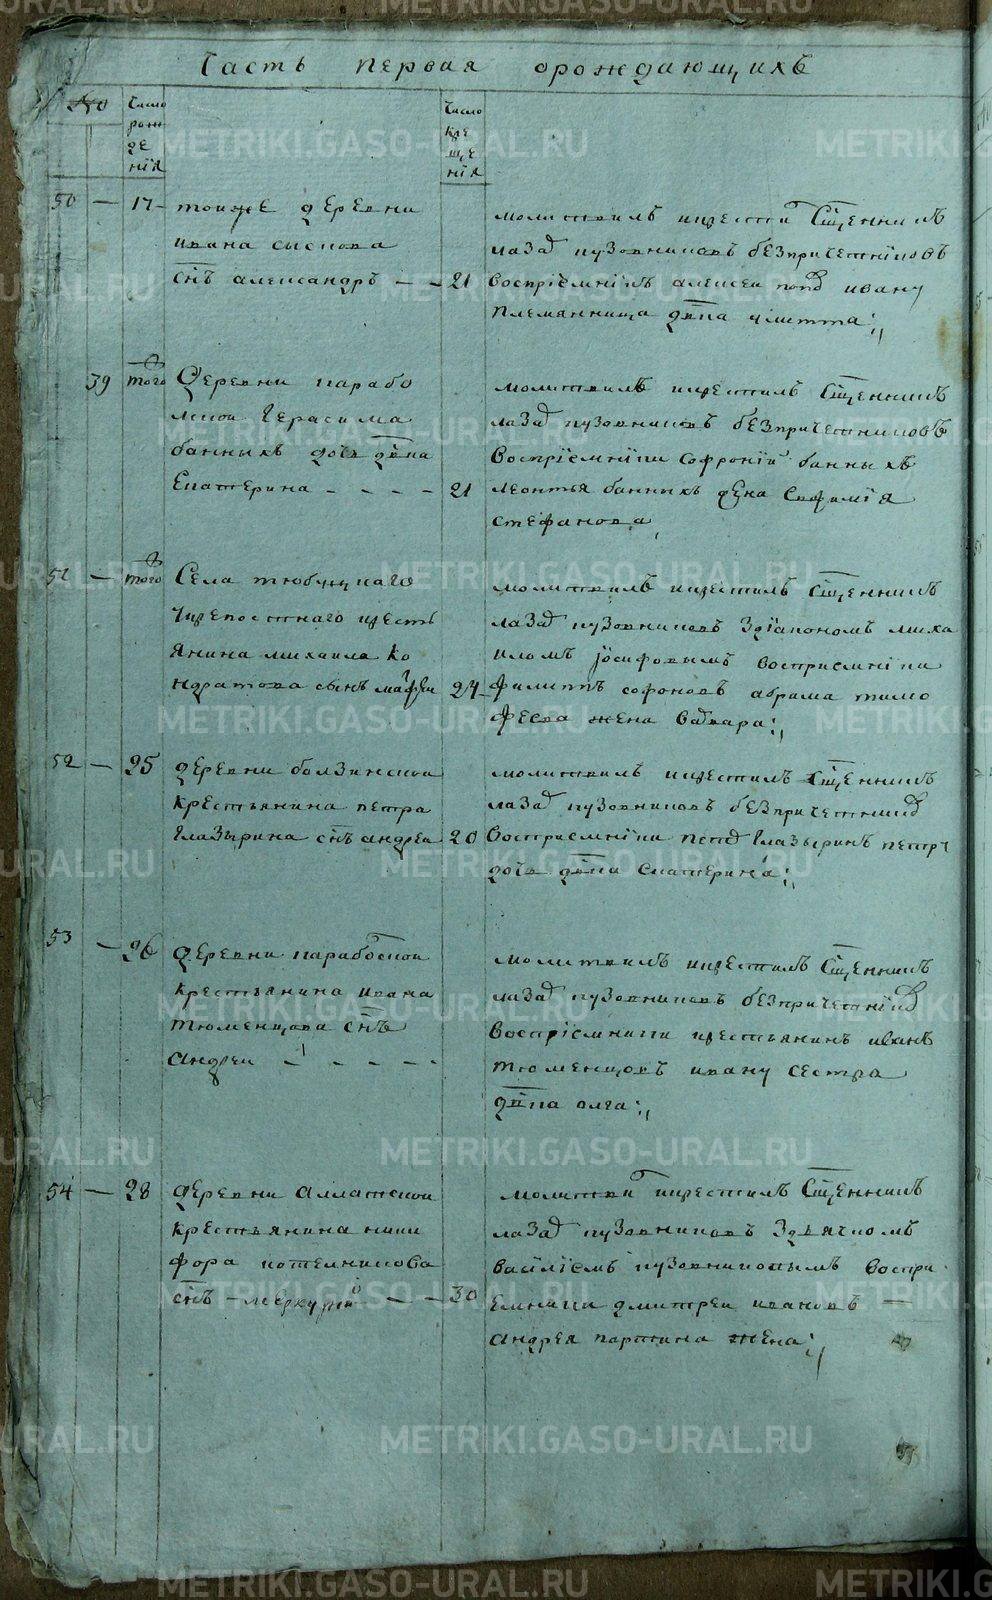 Часть первая орождающихъ
№
Число
рож
де
нія
Число
кре
ще
нія
50 — 17 — тоиже деревни
ивана сыскова
снъ александръ — — 21
молитвилъ икрестил Сщенникъ
лазар пузовниковъ безпричетниковъ
воспріемникъ алексеи поп ивану
племянница двка улитта
39 того Деревни карабо
лской Герасима
банныхъ дочь двка
Екатерина — — — — 21
молитвилъ икрестилъ Сщенникъ
лазар пузовниковъ безпричетниковъ
Воспріемники софроній банныхъ
леонтья банныхъ жена Евфимія
стефанова
51 — того Села тюбукскаго
крепостнаго кресть
янина михаила ко
ндратова сынъ матфеи 24
молитвилъ икрестилъ Сщенникъ
лазар пузовниковъ здіакономъ миха
иломъ іосифовымъ восприемніки
филиппъ софоновъ абрама тимо
феева жена варвара
52 — 25 деревни балзинской
крестьянина петра
Глазырина снъ андреи 20
молитвилъ икрестилъ Сщенникъ
лазар пузовниковъ безпричетник
Восприемніки петр Глазыринъ петр
дочь двка Екатерина
53 — 26 деревни карабоской
крестьянина ивана
тюменцова снъ
Андреи — — — — —
молитвилъ икрестилъ Сщенникъ
лазар пузовниковъ безпричетник
воспріемники крестьянинъ иванъ
тюменцовъ ивану сестра
двка олга
54 — 28 деревни аллакской
крестьянина ники
фора котелникова
снъ — меркурій — — 30
молитви икрестилъ Сщенникъ
лазар пузовниковъ здьячкомъ
василіемъ пузовниковымъ воспри
емники дмитреи ивановъ —
андрея партина жена
METRIKI.GASO-URAL.RU